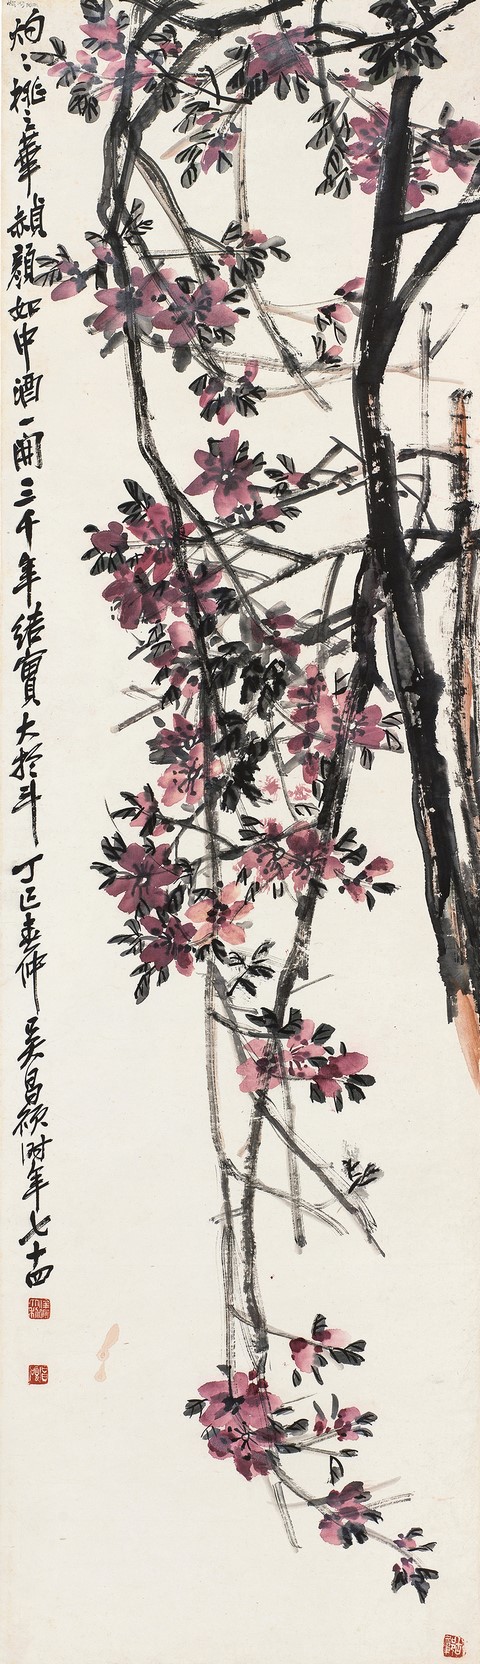 灼〻桃之華赬顏如中酒一開三千年結實大於斗丁巳春仲吳昌碩時年七十四